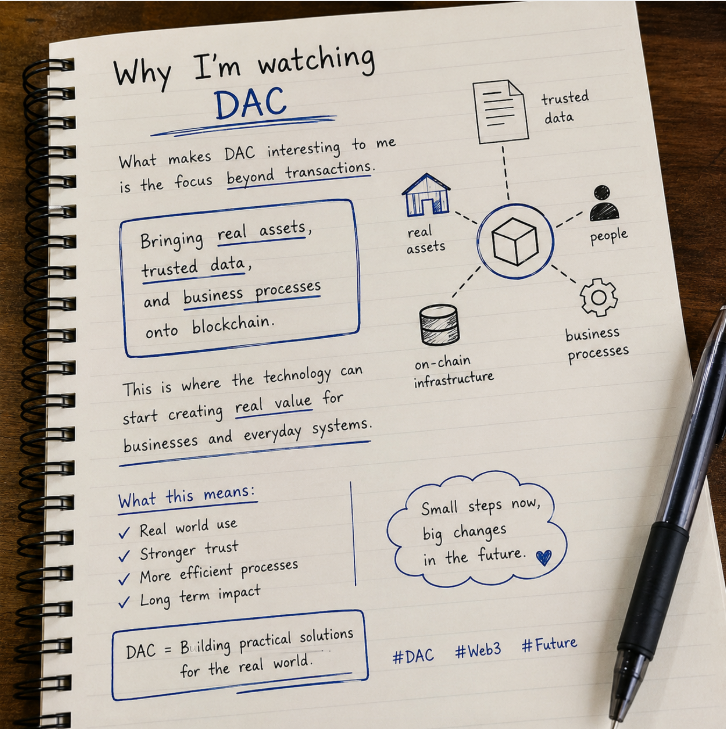 Why I'm watching
DAC
What makes DAC interesting to me
is the focus beyond transactions.
Bringing real assets,
trusted data,
and business processes
onto blockchain.
trusted
data
real
assets
people
on-chain
infrastructure
business
processes
This is where the technology can
start creating real value for
businesses and everyday systems.
What this means:
✓ Real world use
✓ Stronger trust
✓ More efficient processes
✓ Long term impact
Small steps now,
big changes
in the future.
DAC = Building practical solutions
for the real world.
#DAC #Web3 #Future